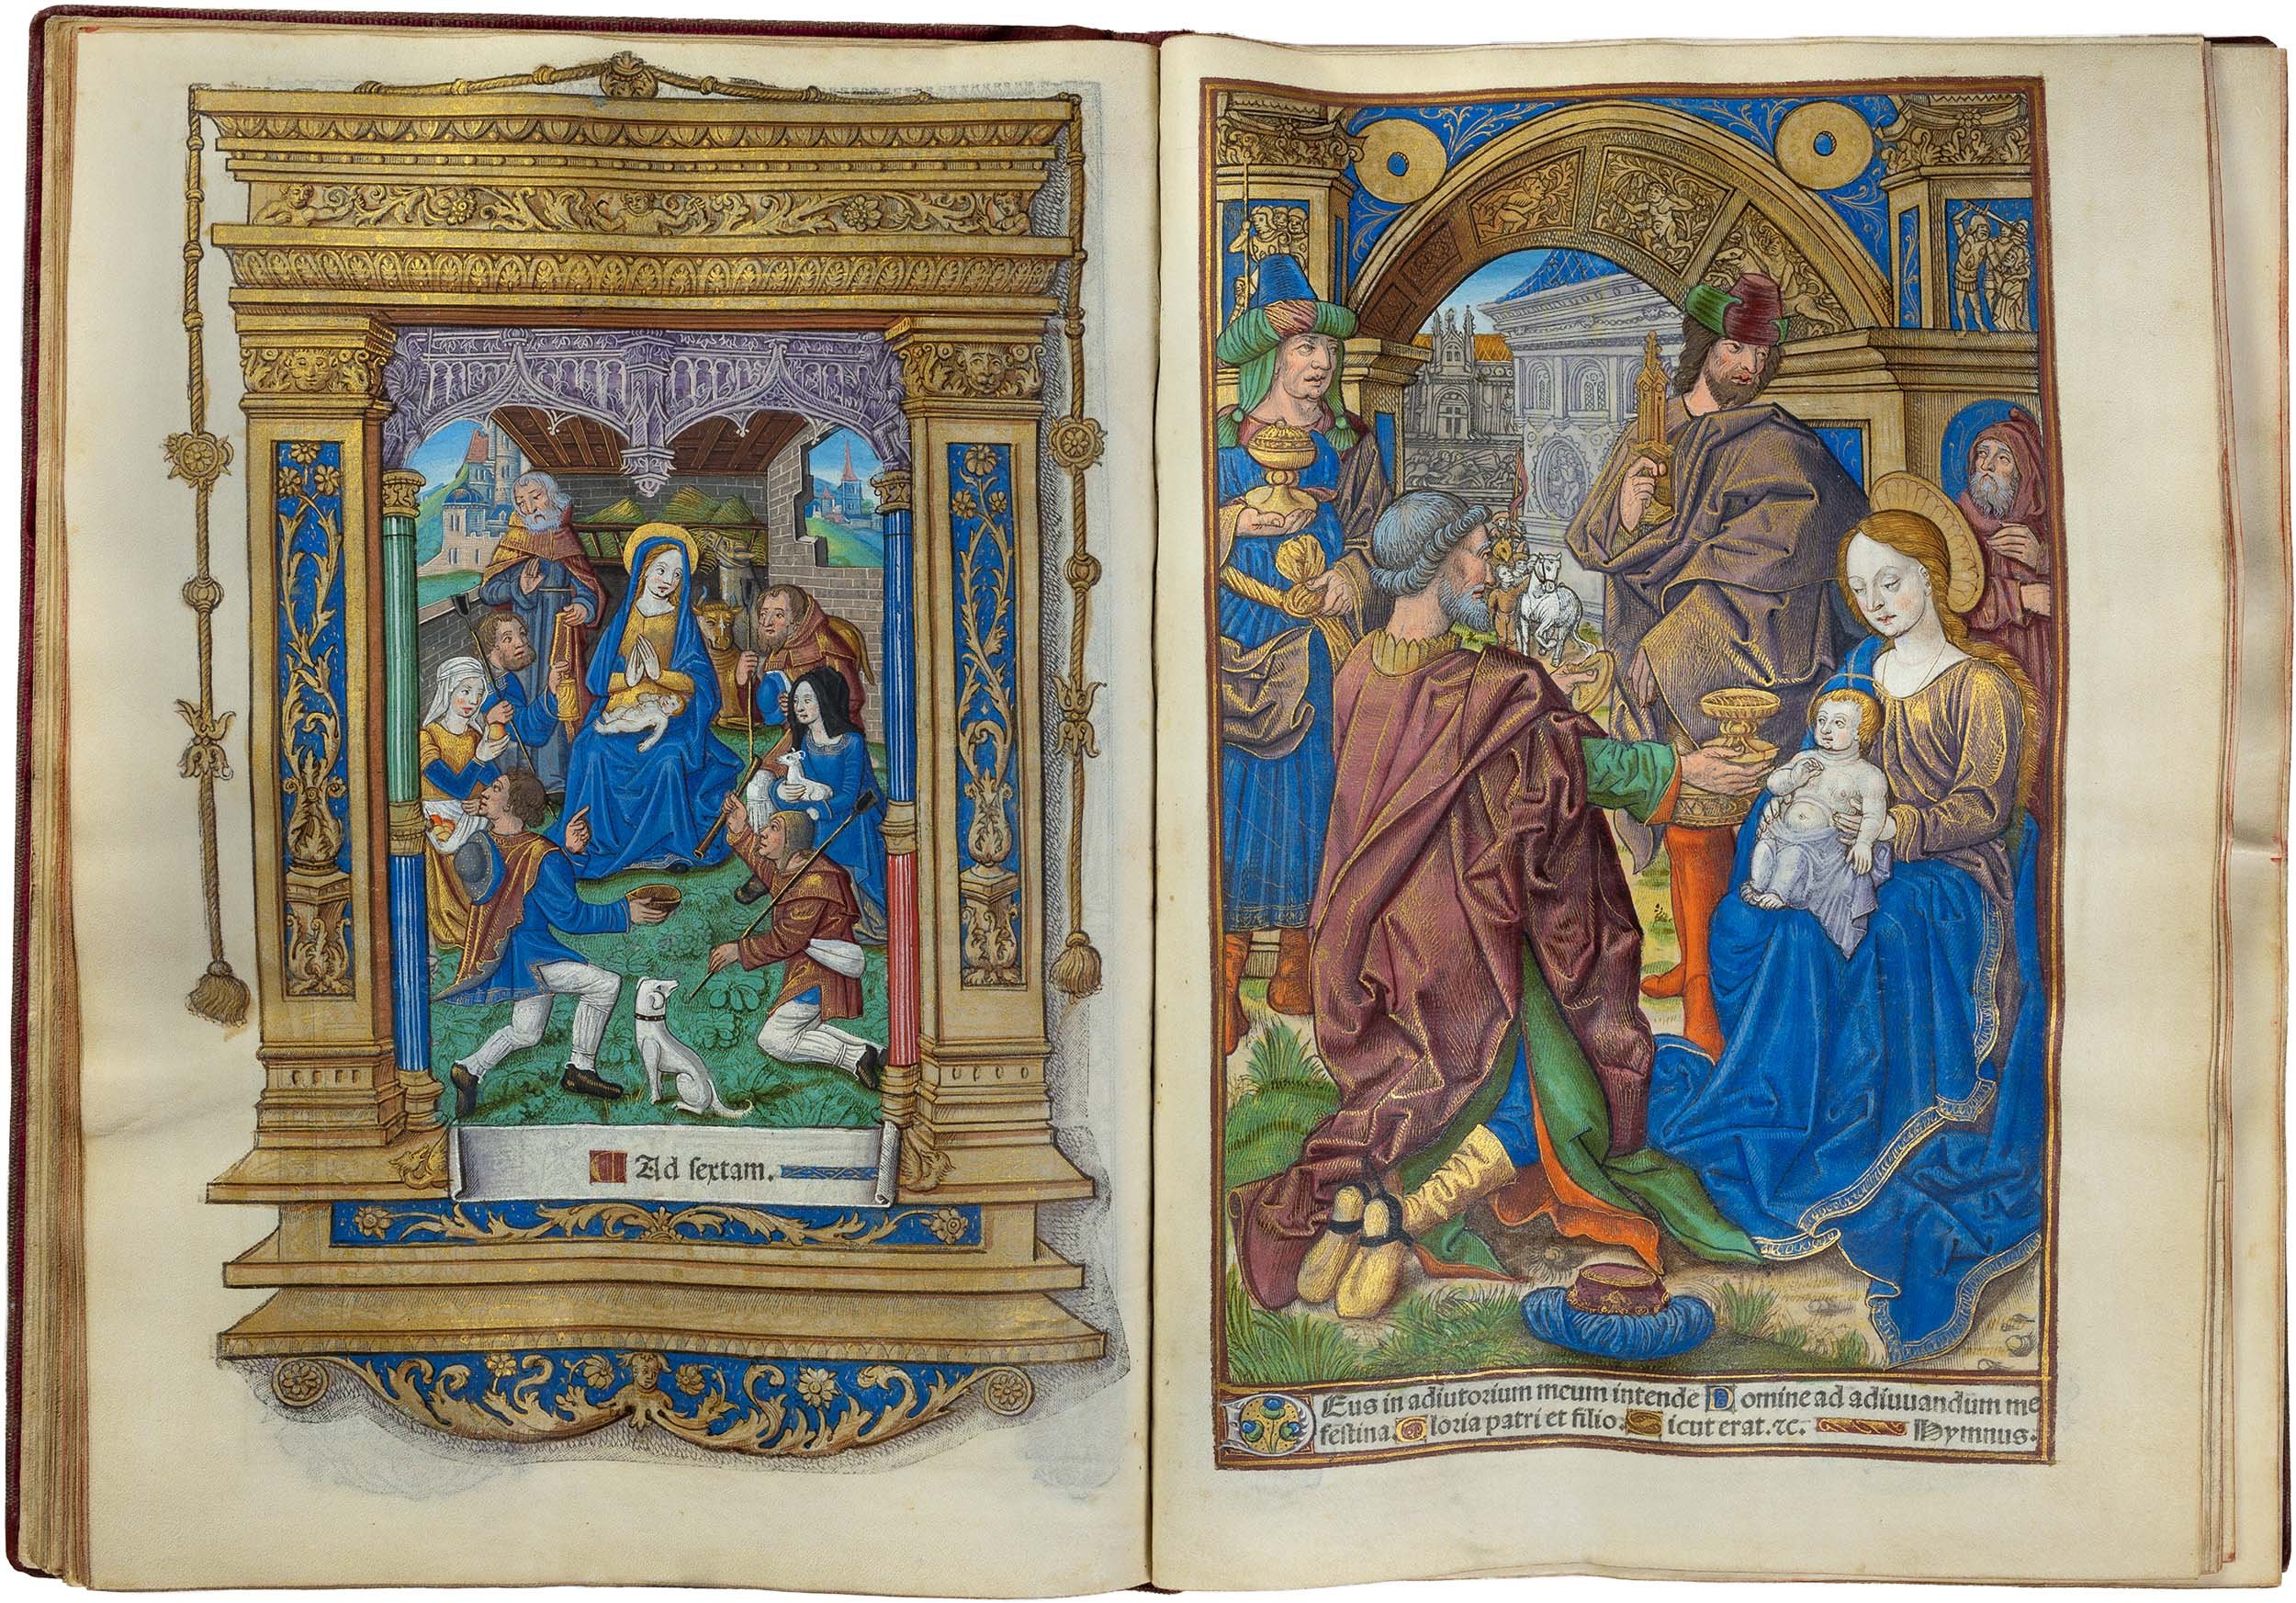 Ad sextam.
Deus in adiutorium meum intende Domine ad adiuuandum me
festina. Gloria patri et filio. Sicut erat. ⁊c. Hymnus.